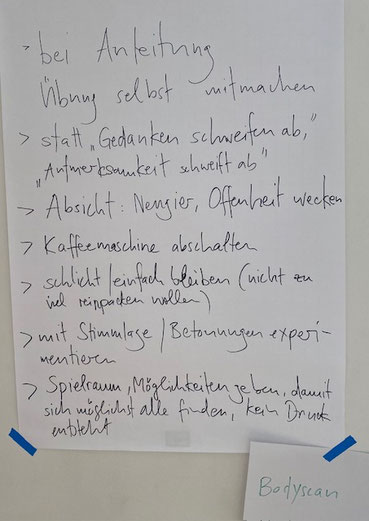 > bei Anleitung
Übung selbst mitmachen
> statt „Gedanken schweifen ab,"
„Aufmerksamkeit schweift ab"
> Absicht: Neugier, Offenheit wecken
> Kaffeemaschine abschalten
> schlicht/einfach bleiben (nicht zu
viel reinpacken wollen)
> mit Stimmlage / Betonungen experi-
mentieren
> Spielraum, Möglichkeiten geben, damit
sich möglichst alle finden, kein Druck
entsteht
Bodyscan